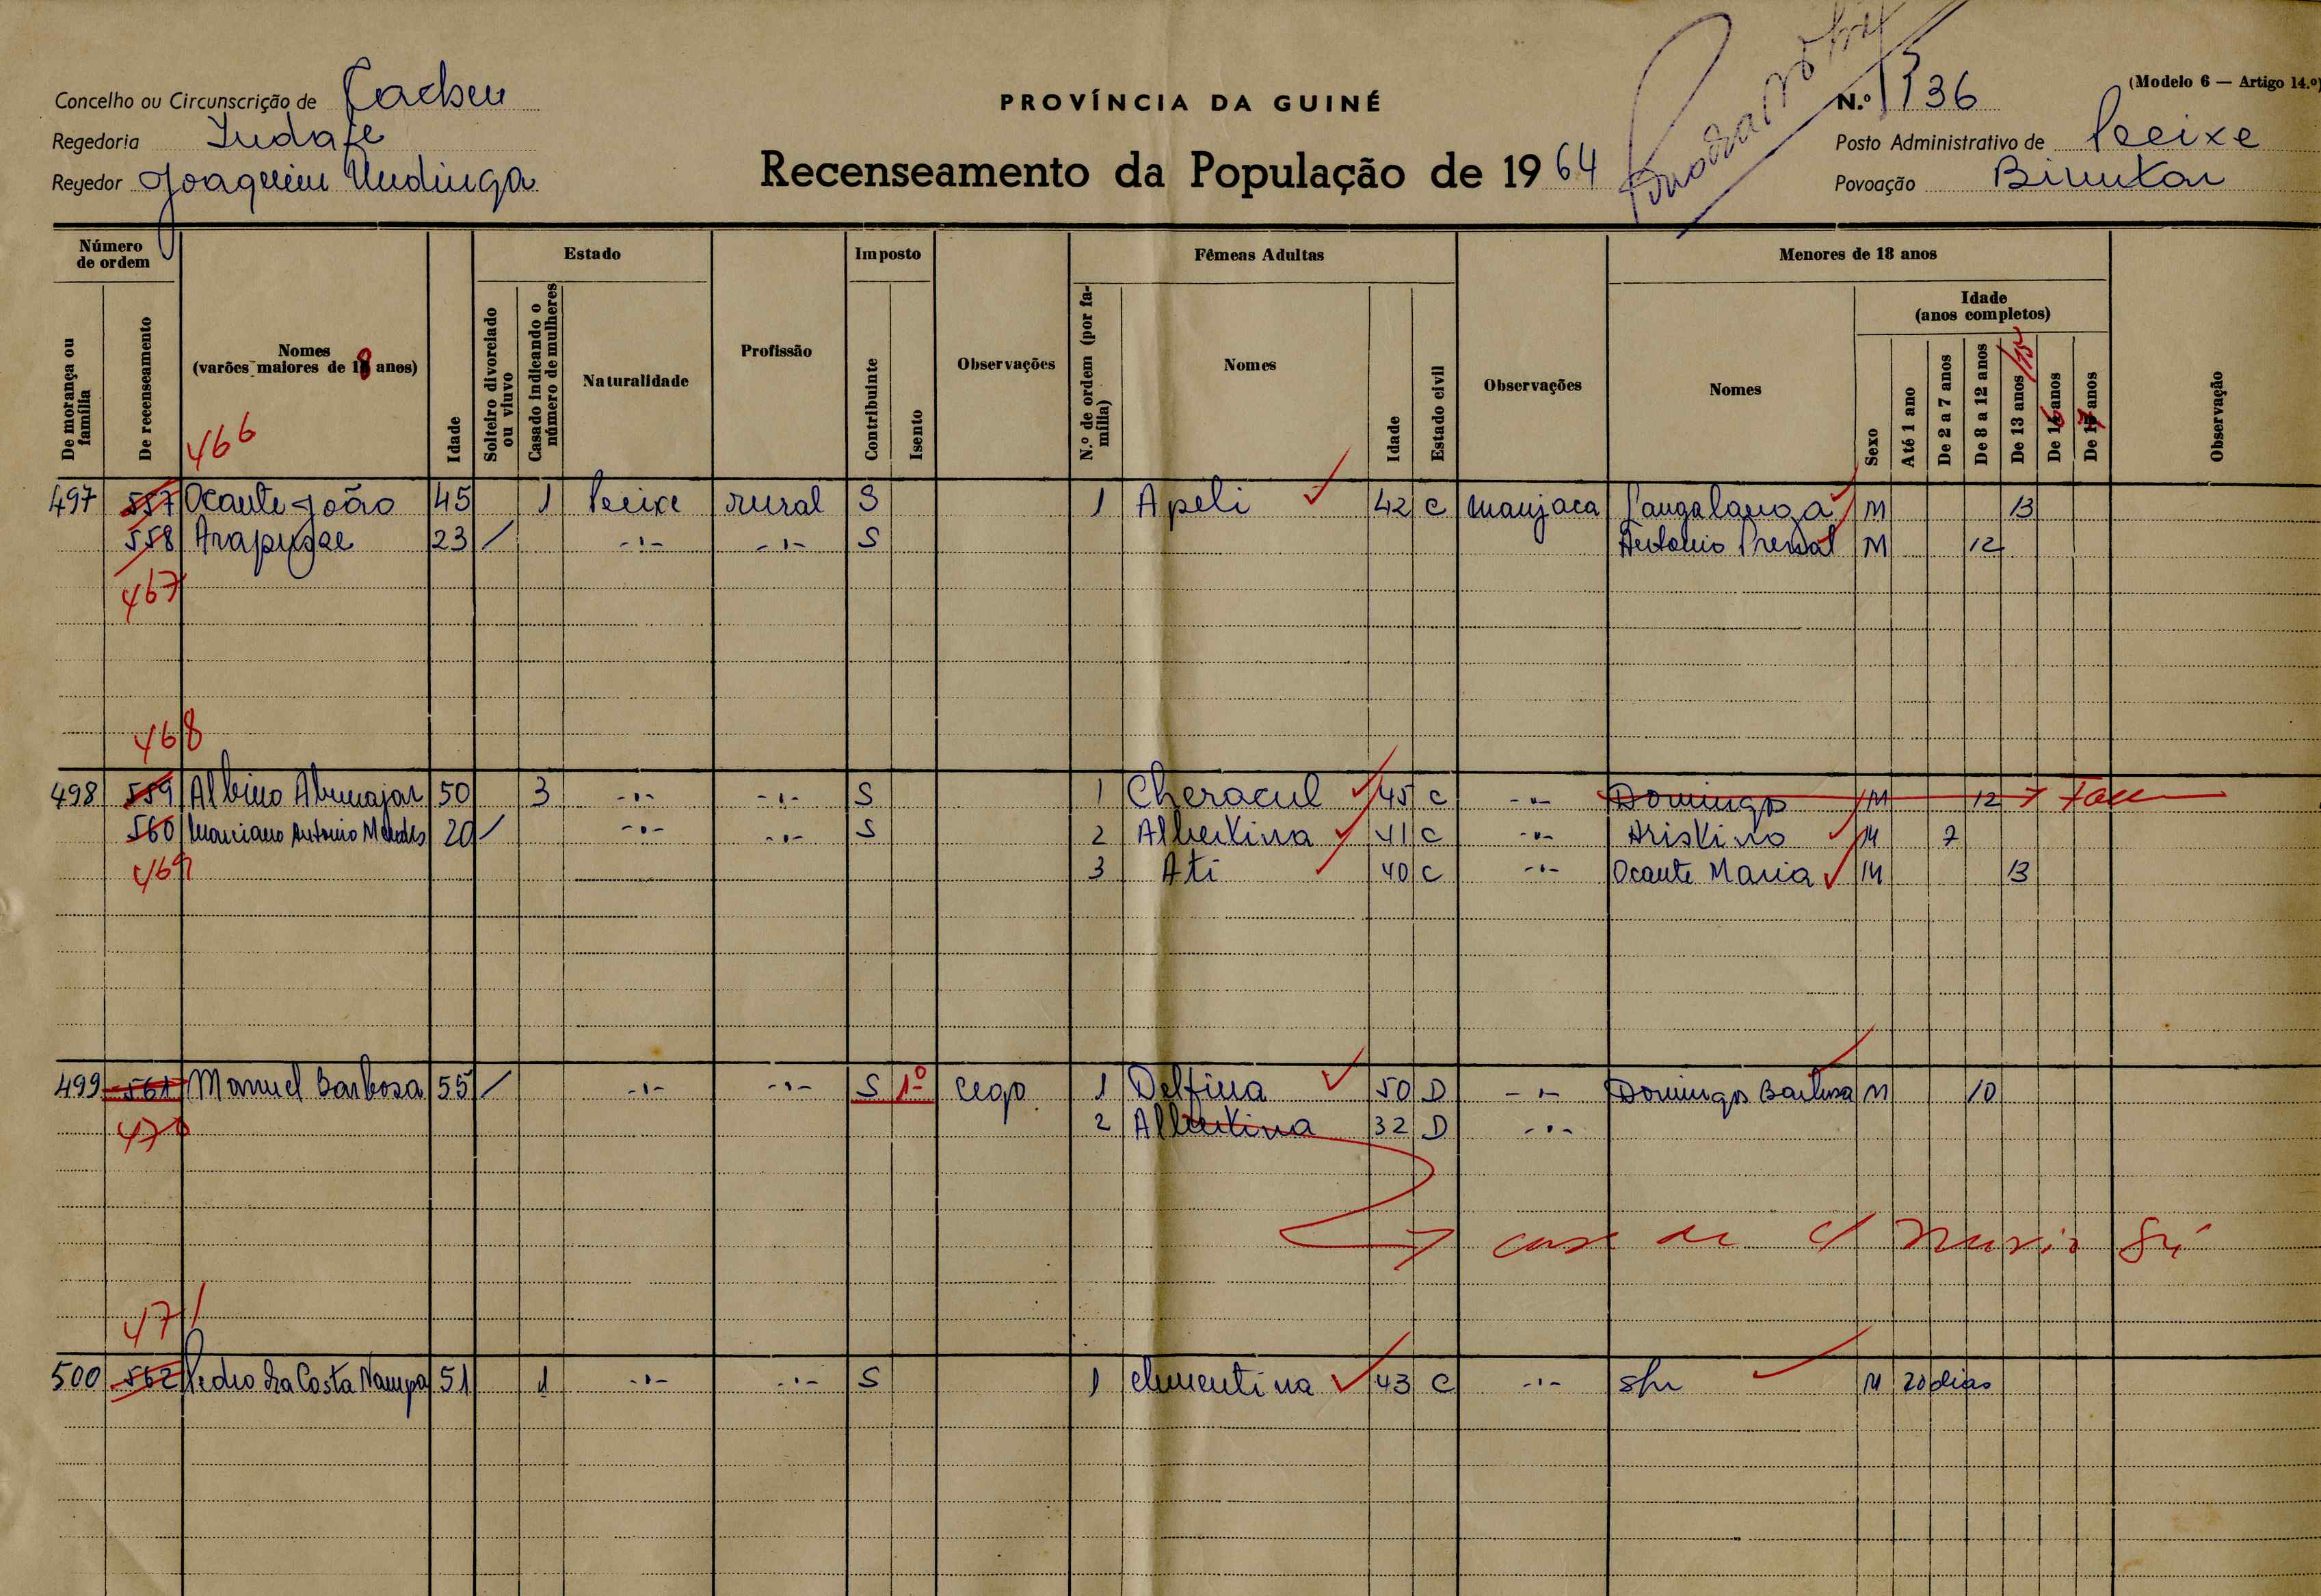 Concelho ou Circunscrição de Cacheu
Regedoria
Regedor Joaquim
PROVÍNCIA DA GUINÉ
Recenseamento da População de 1964
(Modelo 6 — Artigo 14.º)
N.º 136
Posto Administrativo de Peeixe
Povoação Bimukar
Número de ordem
De morança ou família
De recenseamento
Nomes (varões maiores de 18 anos)
466
Idade
Estado
Solteiro divorciado ou viuvo
Casado indicando o número de mulheres
Naturalidade
Profissão
Imposto
Contribuinte
Isento
Observações
Fêmeas Adultas
N.º de ordem (por família)
Nomes
Idade
Estado civil
Observações
Menores de 18 anos
Nomes
Sexo
Idade (anos completos)
Até 1 ano
De 2 a 7 anos
De 8 a 12 anos
De 13 anos /15
De 16 anos
De 17 anos
Observação
497 557 Ocante João 45 1 Peeixe rural S 1 Apeli 42 C manjaca M 13
558 23 / -"- -"- S Antonio M 12
467
468
498 559 Albino 50 3 -"- -"- S 1 Cheracul 45 C -"- Domingos M 12
560 Marciano Antonio Mendes 20 / -"- -"- S 2 Albertina 41 C -"- Aristino M 7
469 3 Ati 40 C -"- Ocante Maria M 13
499 561 Manuel Barbosa 55 / -"- -"- S 1º cego 1 Delfina 50 D -"- Domingos Barbosa M 10
470 2 Albertina 32 D -"-
471
500 562 Pedro da Costa Nampa 51 1 -"- -"- S 1 Clementina 43 C -"- S/n M 20 dias